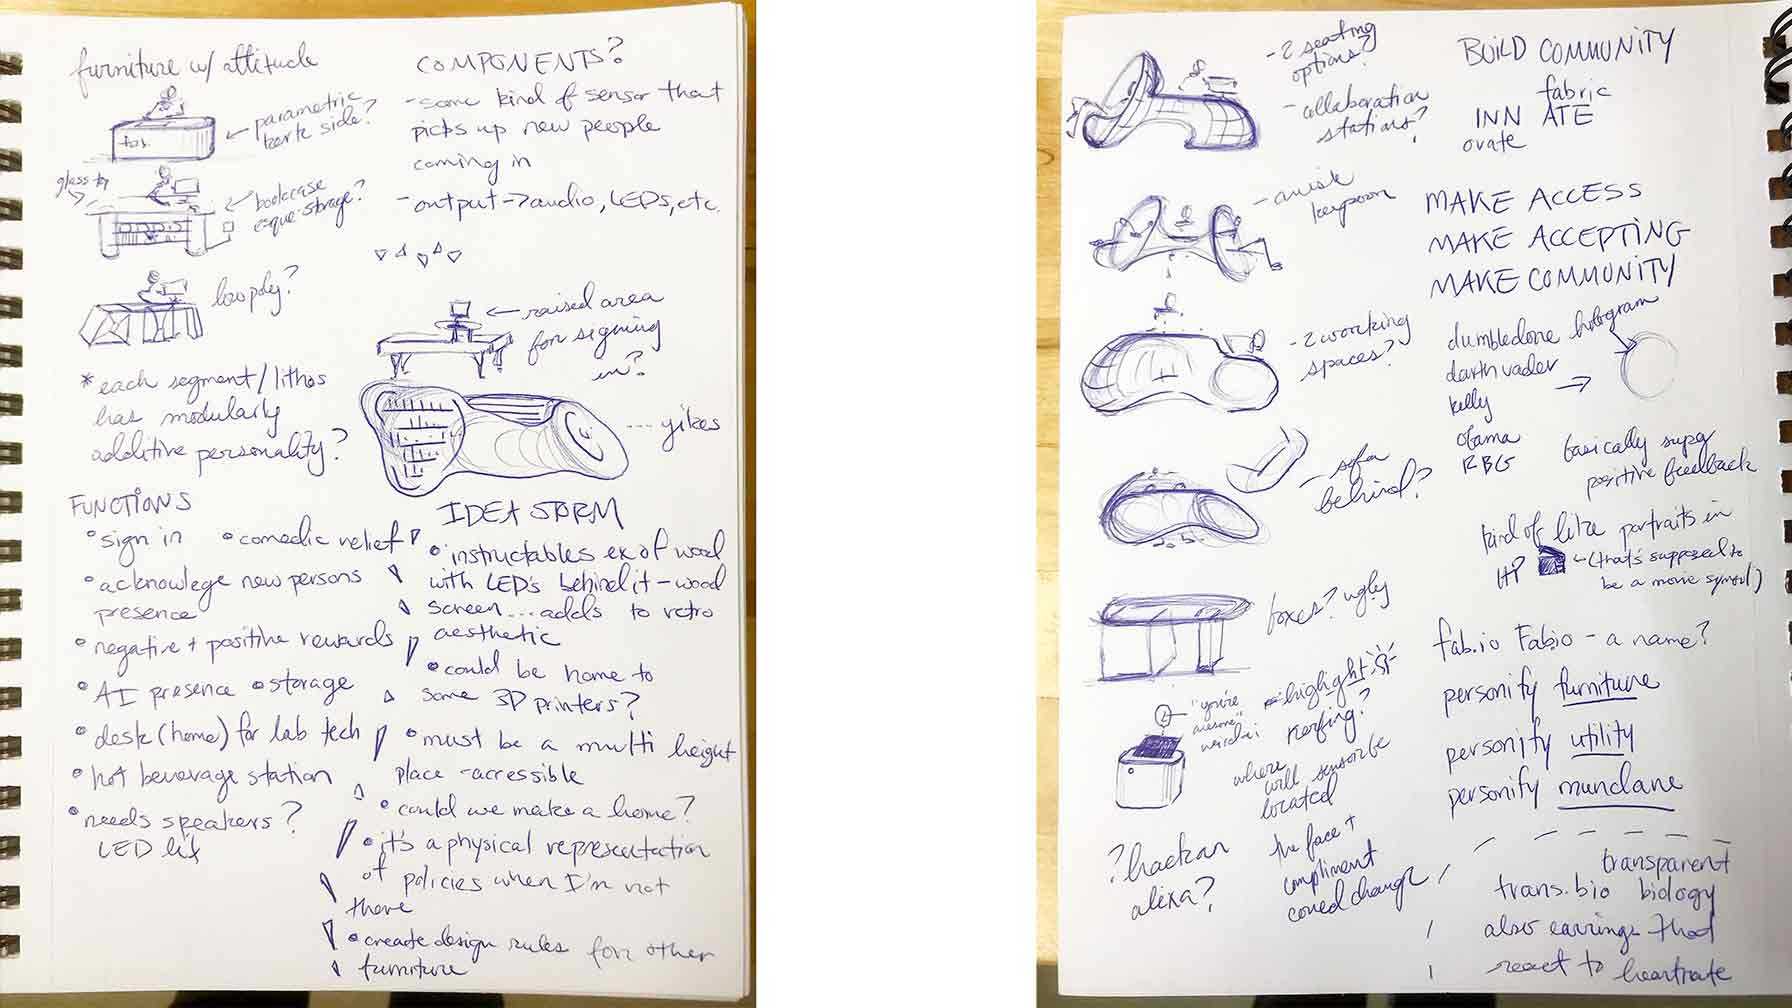 furniture w/ attitude
fab.
parametric
back side?
glass top
bookcase
esque storage?
low poly?
*each segment/lithos
has modularly
additive personality?
FUNCTIONS
• sign in
• comedic relief
• acknowlege new persons
presence
• negative + positive rewards
• AI presence • storage
• desk (home) for lab tech
• hot beverage station
• needs speakers?
LED lit
COMPONENTS?
- some kind of sensor that
picks up new people
coming in
- output → audio, LEDs, etc.
← raised area
for signing
in?
... yikes
IDEA STORM
• instructables ex of wood
with LED's behind it - wood
screen... adds to retro
aesthetic
• could be home to
some 3D printers?
• must be a multi height
place - accessible
• could we make a home?
• it's a physical representation
of policies when I'm not
there
• create design rules for other
furniture
- 2 seating
options?
- collaboration
stations?
- 2 working
spaces?
- sofa
behind?
boxes? ugly
"you're
awesome"
highlight
kerfing?
where
will sensor be
located
? hack an
alexa?
the face +
compliment
could change
BUILD COMMUNITY
fabric
INN ATE
ovate
MAKE ACCESS
MAKE ACCEPTING
MAKE COMMUNITY
dumbledore hologram
darth vader
kelly
obama
RBG
basically
positive feedback
kind of like portraits in
HP ← (that's supposed to
be a movie symbol)
fab.io Fabio - a name?
personify furniture
personify utility
personify mundane
transparent
trans.bio biology
also earrings that
react to heartrate